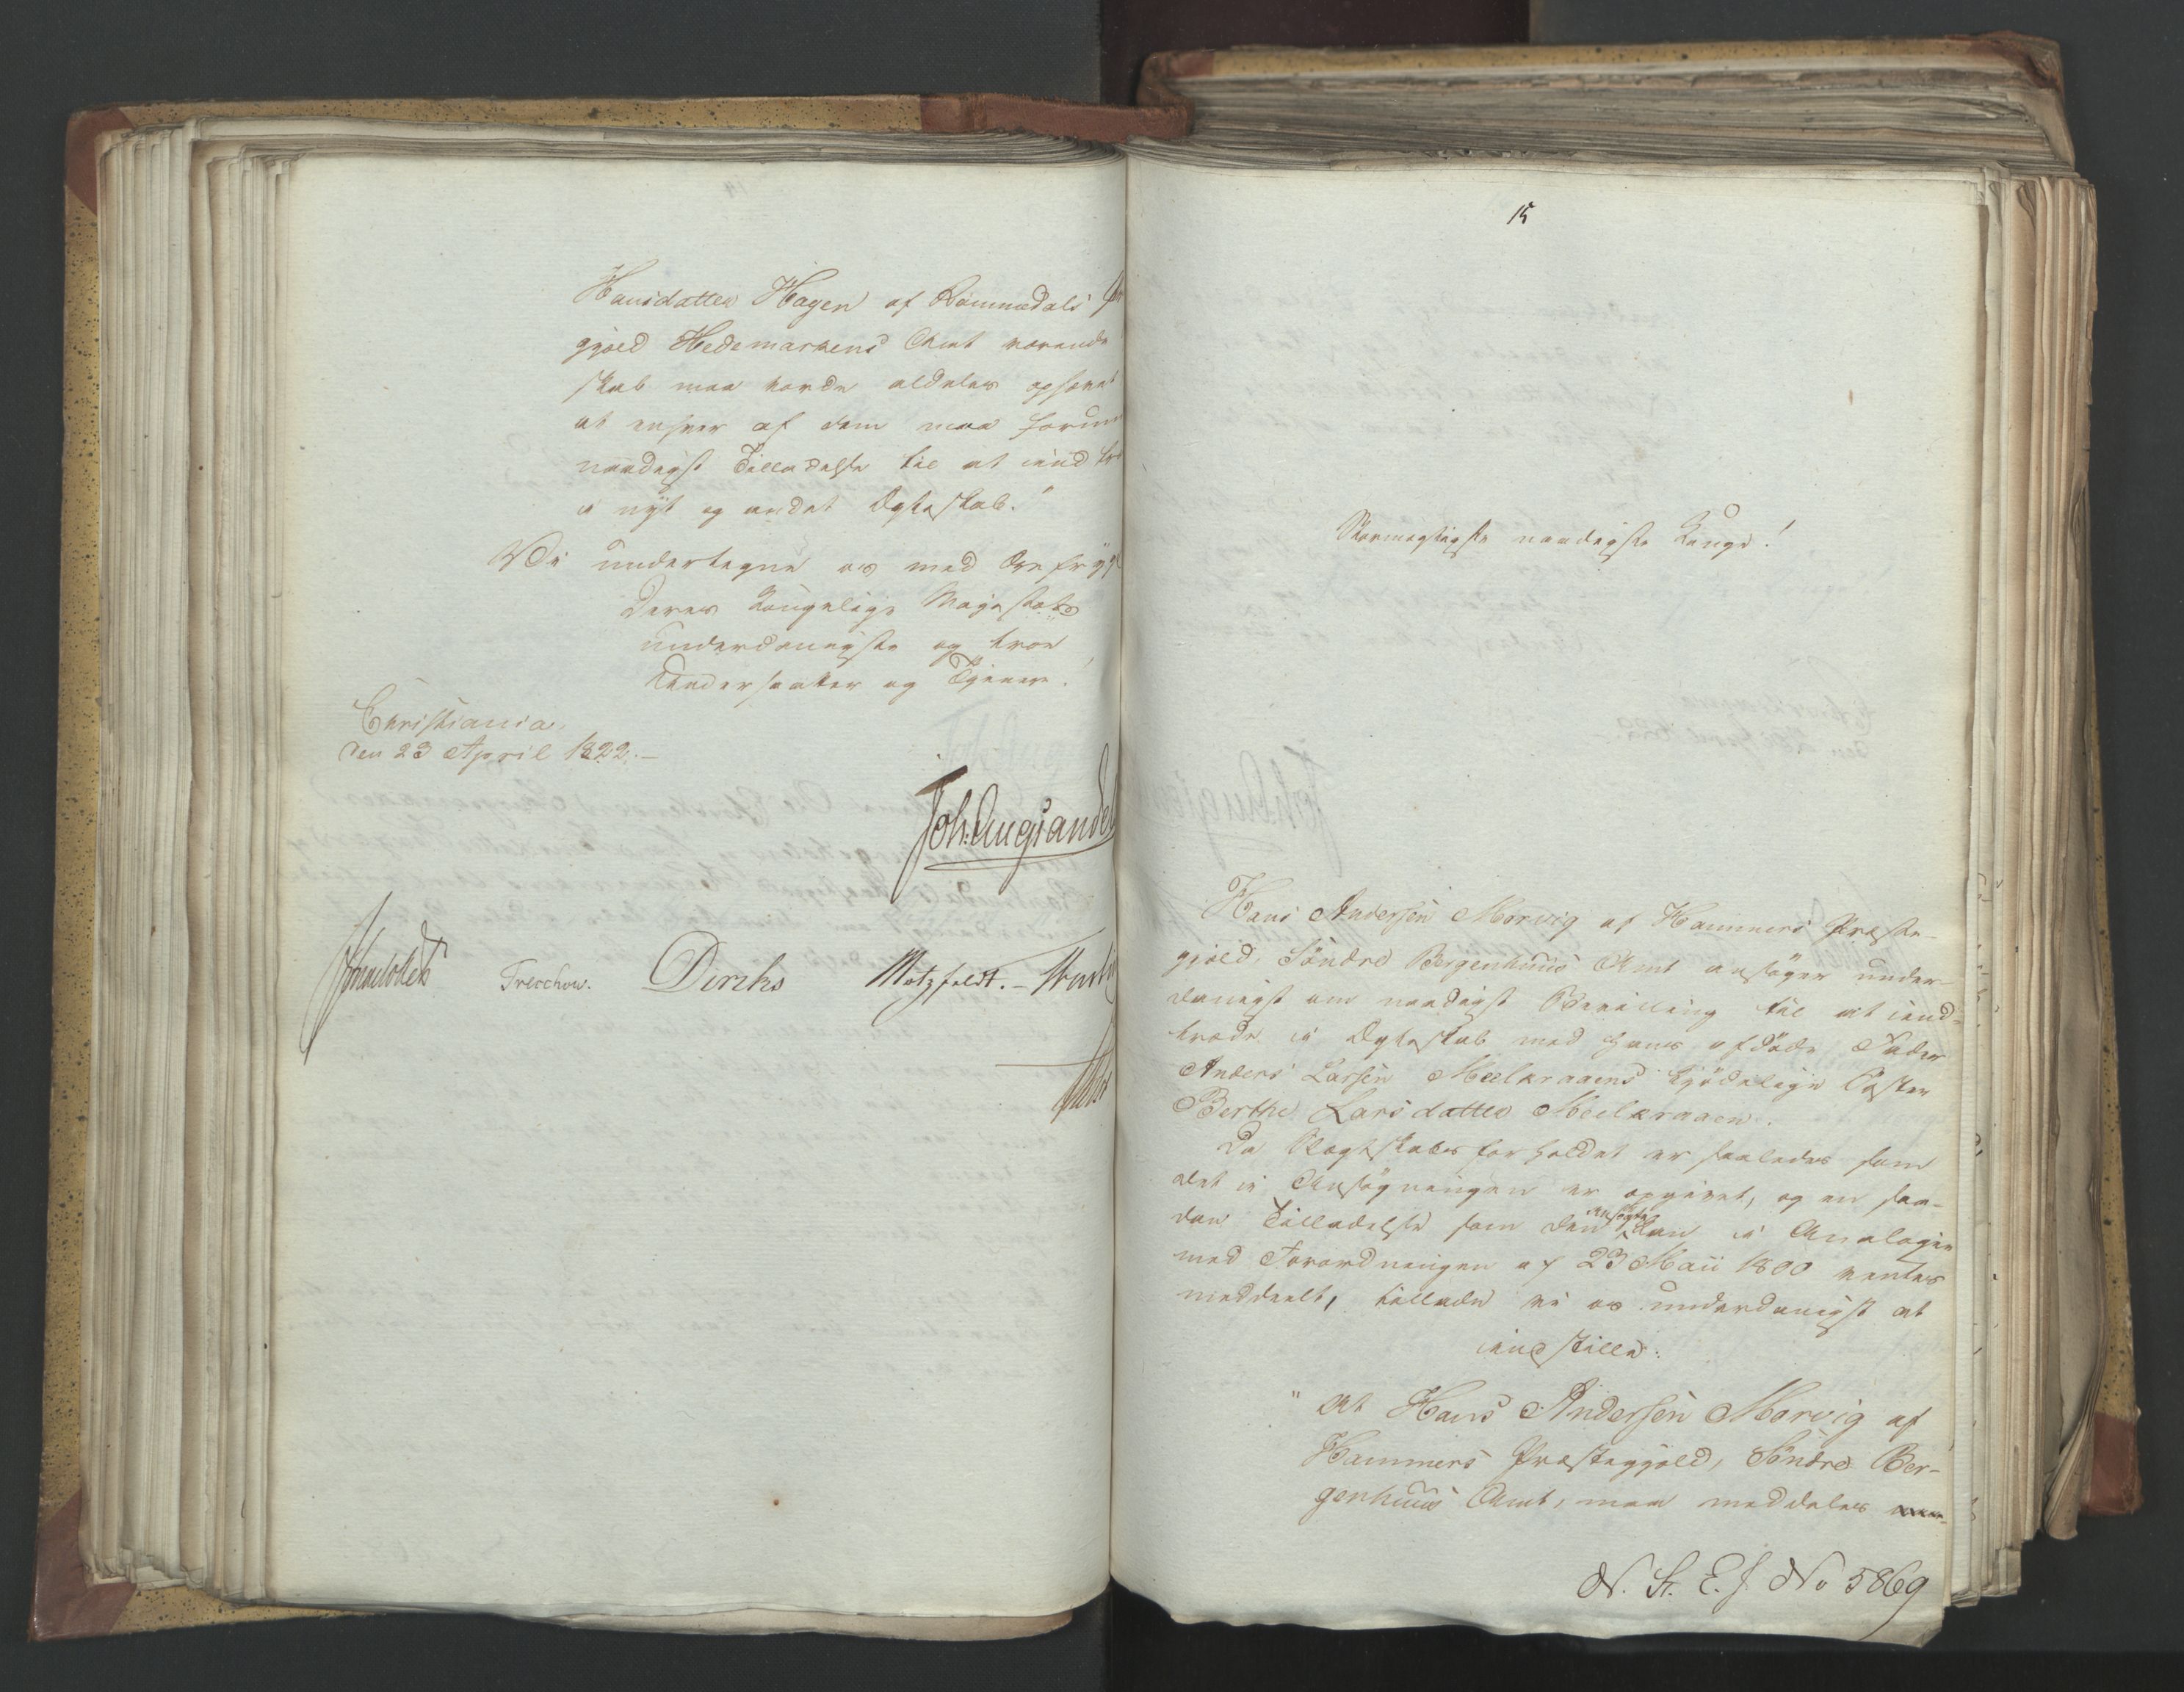 Hansdatter Hagen af Romedals
gjeld Hedemarkens Amt værende
skab maa vorde aldeles ophævet
at enhver af dem maa
naadigst Tilladelse til at ind
i nyt og andet Ægteskab."
Vi undertegne os med
Deres Kongelige Majestæts
underdanigste og troe
Undersaatter og Tjenere!
Christiania
den 23 April 1822.—
Joh. Aug. Sandel
Treschow. Diriks Motzfeldt.—
15
Stormægtigste naadigste Konge!
Hans Andersen Morvig af Hammers Præste-
gjeld, Söndre Bergenhuus Amt ansöger under-
danigst om naadigst Bevilling til at ind-
træde i Ægteskab med hans afdöde Fader
Anders Larsen Meelkraaens kjödelige Söster
Berthe Larsdatter Meelkraaen.
Da Slægtskabsforholdet er saaledes som
det i Ansögningen er opgivet, og en saa-
dan Tilladelse som den ansögte kan i Analogie
med Forordningen af 23 Maii 1800 ventes
meddeelt, tillade vi os underdanigst at
indstille:
"at Hans Andersen Morvig af
Hammers Præstegjeld, Söndre Ber-
genhuus Amt, maa meddeles
N. St. E. f No 5869